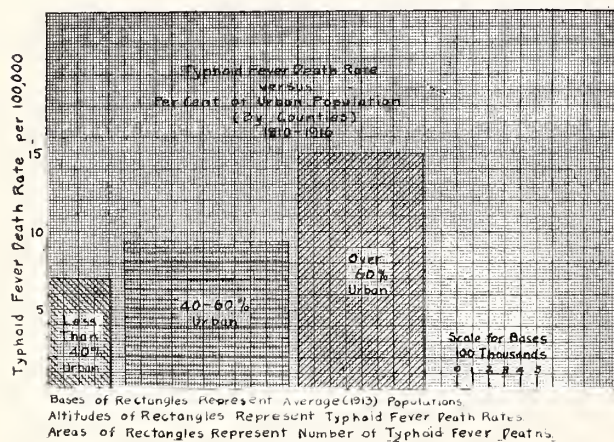 Typhoid Fever Death Rate per 100,000
Typhoid Fever Death Rate
versus
Per Cent of Urban Population
(By Counties)
1910-1916
15
10
5
Less
Than
40%
Urban
40-60%
Urban
Over
60%
Urban
Scale for Bases
100 Thousands
0 1 2 3 4 5
Bases of Rectangles Represent Average (1913) Populations.
Altitudes of Rectangles Represent Typhoid Fever Death Rates.
Areas of Rectangles Represent Number of Typhoid Fever Deaths.